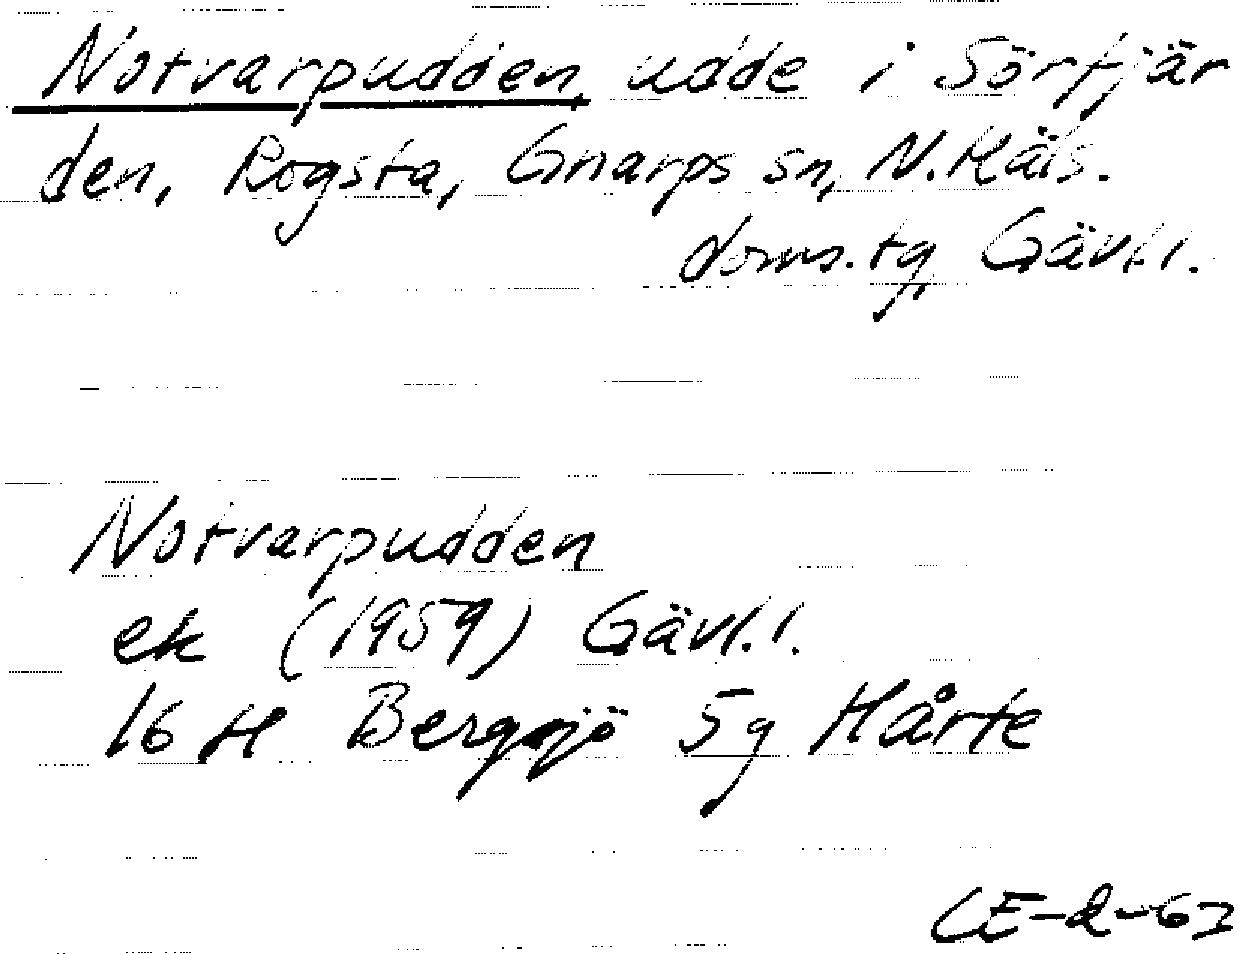 Notvarpudden, udde i Sörfjär
den, Rogsta, Gnarps sn, N. Häls.
doms. tg, Gävl.l.
Notvarpudden
ek (1959) Gävl.l.
16 H Bergsjö 5g Hårte